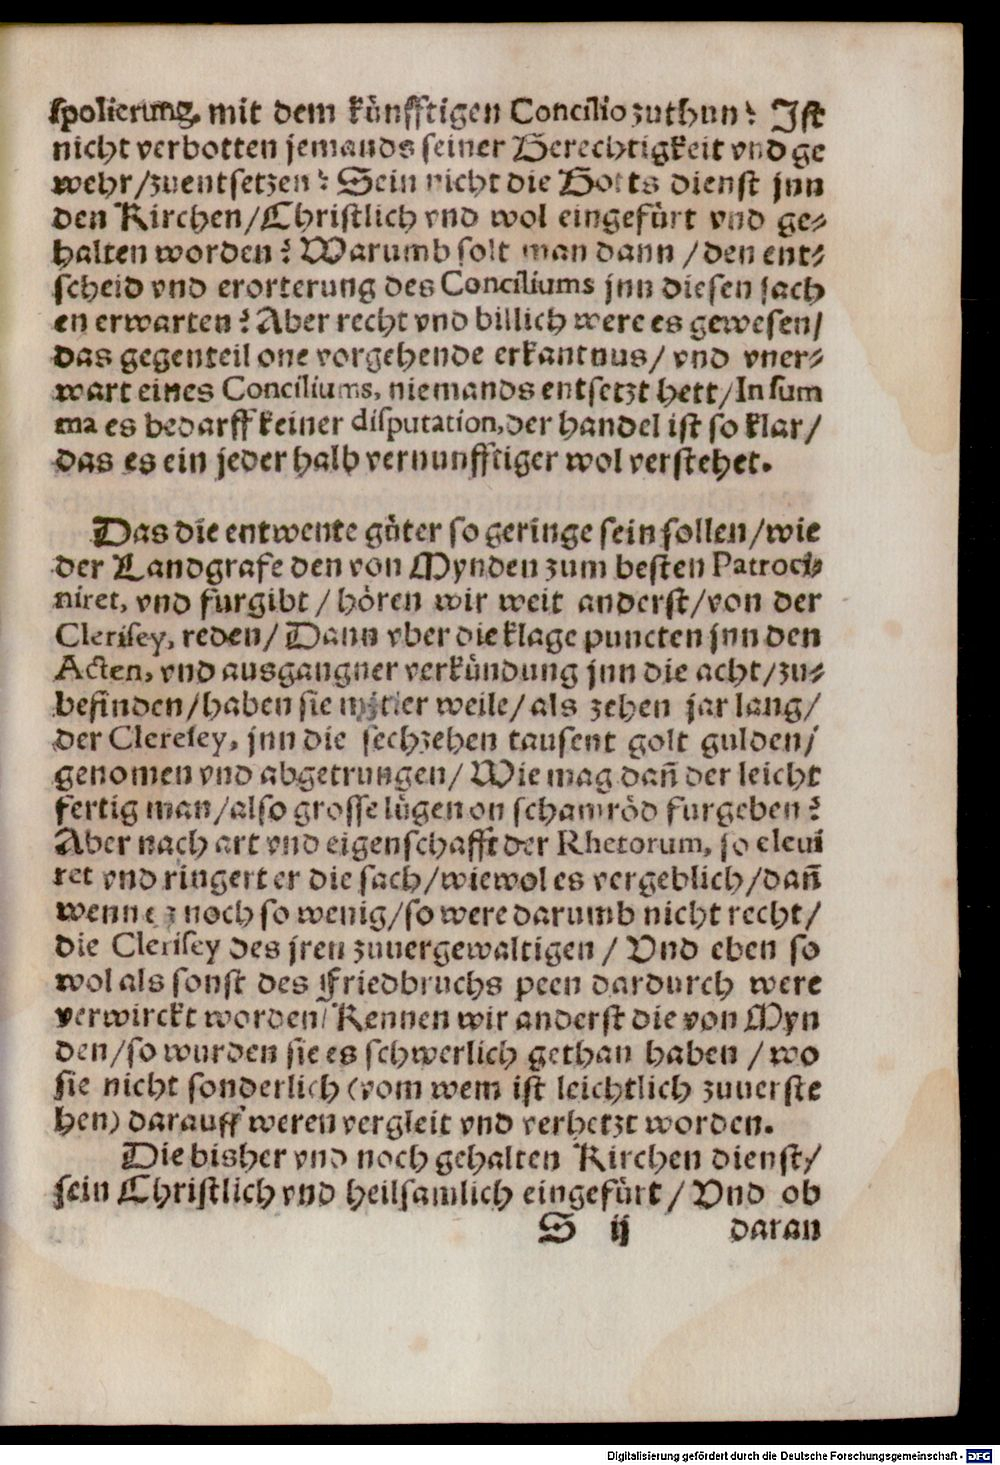 spolierung, mit dem künfftigen Concilio zuthun? Ist
nicht verbotten jemands seiner Gerechtigkeit vnd ge
wehr/zuentsetzen? Sein nicht die Gotts dienst jnn
den Kirchen/Christlich vnd wol eingefürt vnd ge-
halten worden? Warumb solt man dann /den ent-
scheid vnd erorterung des Conciliums jnn diesen sach
en erwarten? Aber recht vnd billich were es gewesen/
das gegenteil one vorgehende erkantnus/ vnd vner-
wart eines Conciliums, niemands entsetzt hett/In sum
ma es bedarff keiner disputation, der handel ist so klar/
das es ein jeder halb vernunfftiger wol verstehet.
Das die entwente güter so geringe sein sollen/wie
der Landgrafe den von Mynden zum besten Patroci-
niret, vnd furgibt / hören wir weit anderst/von der
Clerisey, reden/ Dann vber die klage puncten jnn den
Acten, vnd ausgangner verkündung jnn die acht/zu-
befinden/haben sie mitler weile/ als zehen jar lang/
der Cleresey, jnn die sechzehen tausent golt gulden/
genomen vnd abgetrungen/ Wie mag dañ der leicht
fertig man/also grosse lügen on schamröd furgeben?
Aber nach art vnd eigenschafft der Rhetorum, so eleui
ret vnd ringert er die sach/wiewol es vergeblich/dañ
wenn ez noch so wenig/so were darumb nicht recht/
die Clerisey des jren zuuergewaltigen / Vnd eben so
wol als sonst des Friedbruchs peen dardurch were
verwirckt worden/ Kennen wir anderst die von Myn
den/so wurden sie es schwerlich gethan haben /wo
sie nicht sonderlich (vom wem ist leichtlich zuuerste
hen) darauff weren vergleit vnd verhetzt worden.
Die bisher vnd noch gehalten Kirchen dienst/
sein Christlich vnd heilsamlich eingefürt / Vnd ob
S ij daran
Digitalisierung gefördert durch die Deutsche Forschungsgemeinschaft - DFG